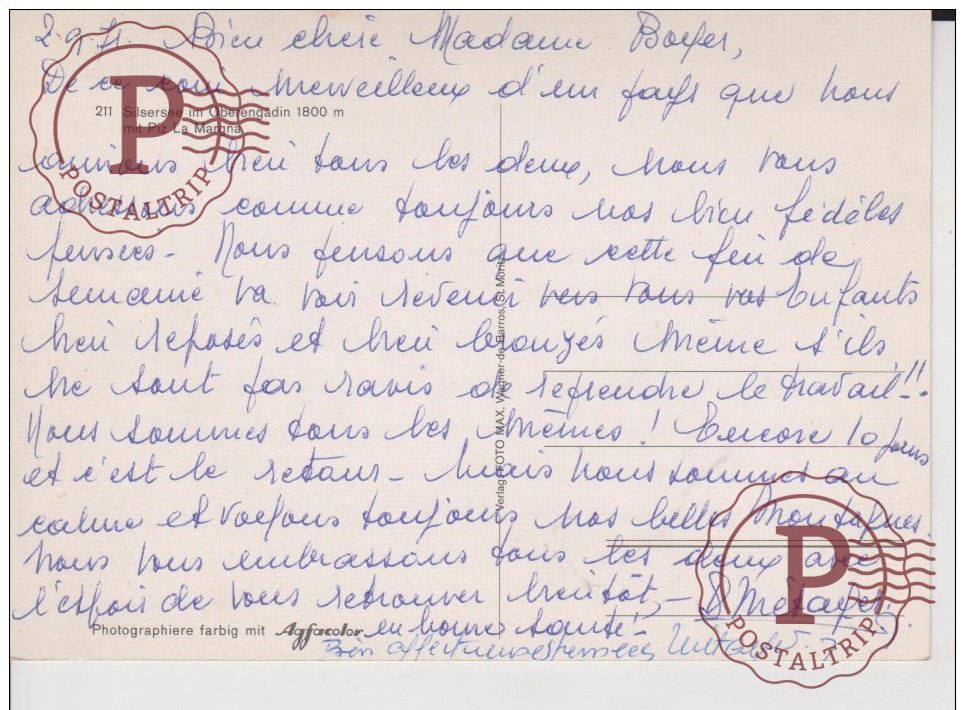 2.9.71. Bien chère Madame Boyer,
De ce coin merveilleux d'un pays que nous
211 Silsersee im Oberengadin 1800 m
mit Piz La Margna
aimons bien tous les deux, nous vous
adressons comme toujours nos bien fidèles
pensées - Nous pensons que cette fin de
semaine va voir revenir vers vous vos Enfants
bien reposés et bien bronzés même s'ils
ne sont pas ravis de reprendre le travail!!
Nous sommes tous les mêmes! Encore 10 jours
et c'est le retour - Mais nous sommes au
calme et voyons toujours nos belles Montagnes.
Nous vous embrassons tous les deux avec
l'espoir de vous retrouver bientôt, - Métayer
en bonne santé!
Photographiere farbig mit Agfacolor
affectueuses pensées
Verlag: FOTO MAX. Wagner-de Barros, St. Moritz
P
POSTALTRIP
P
POSTALTRIP